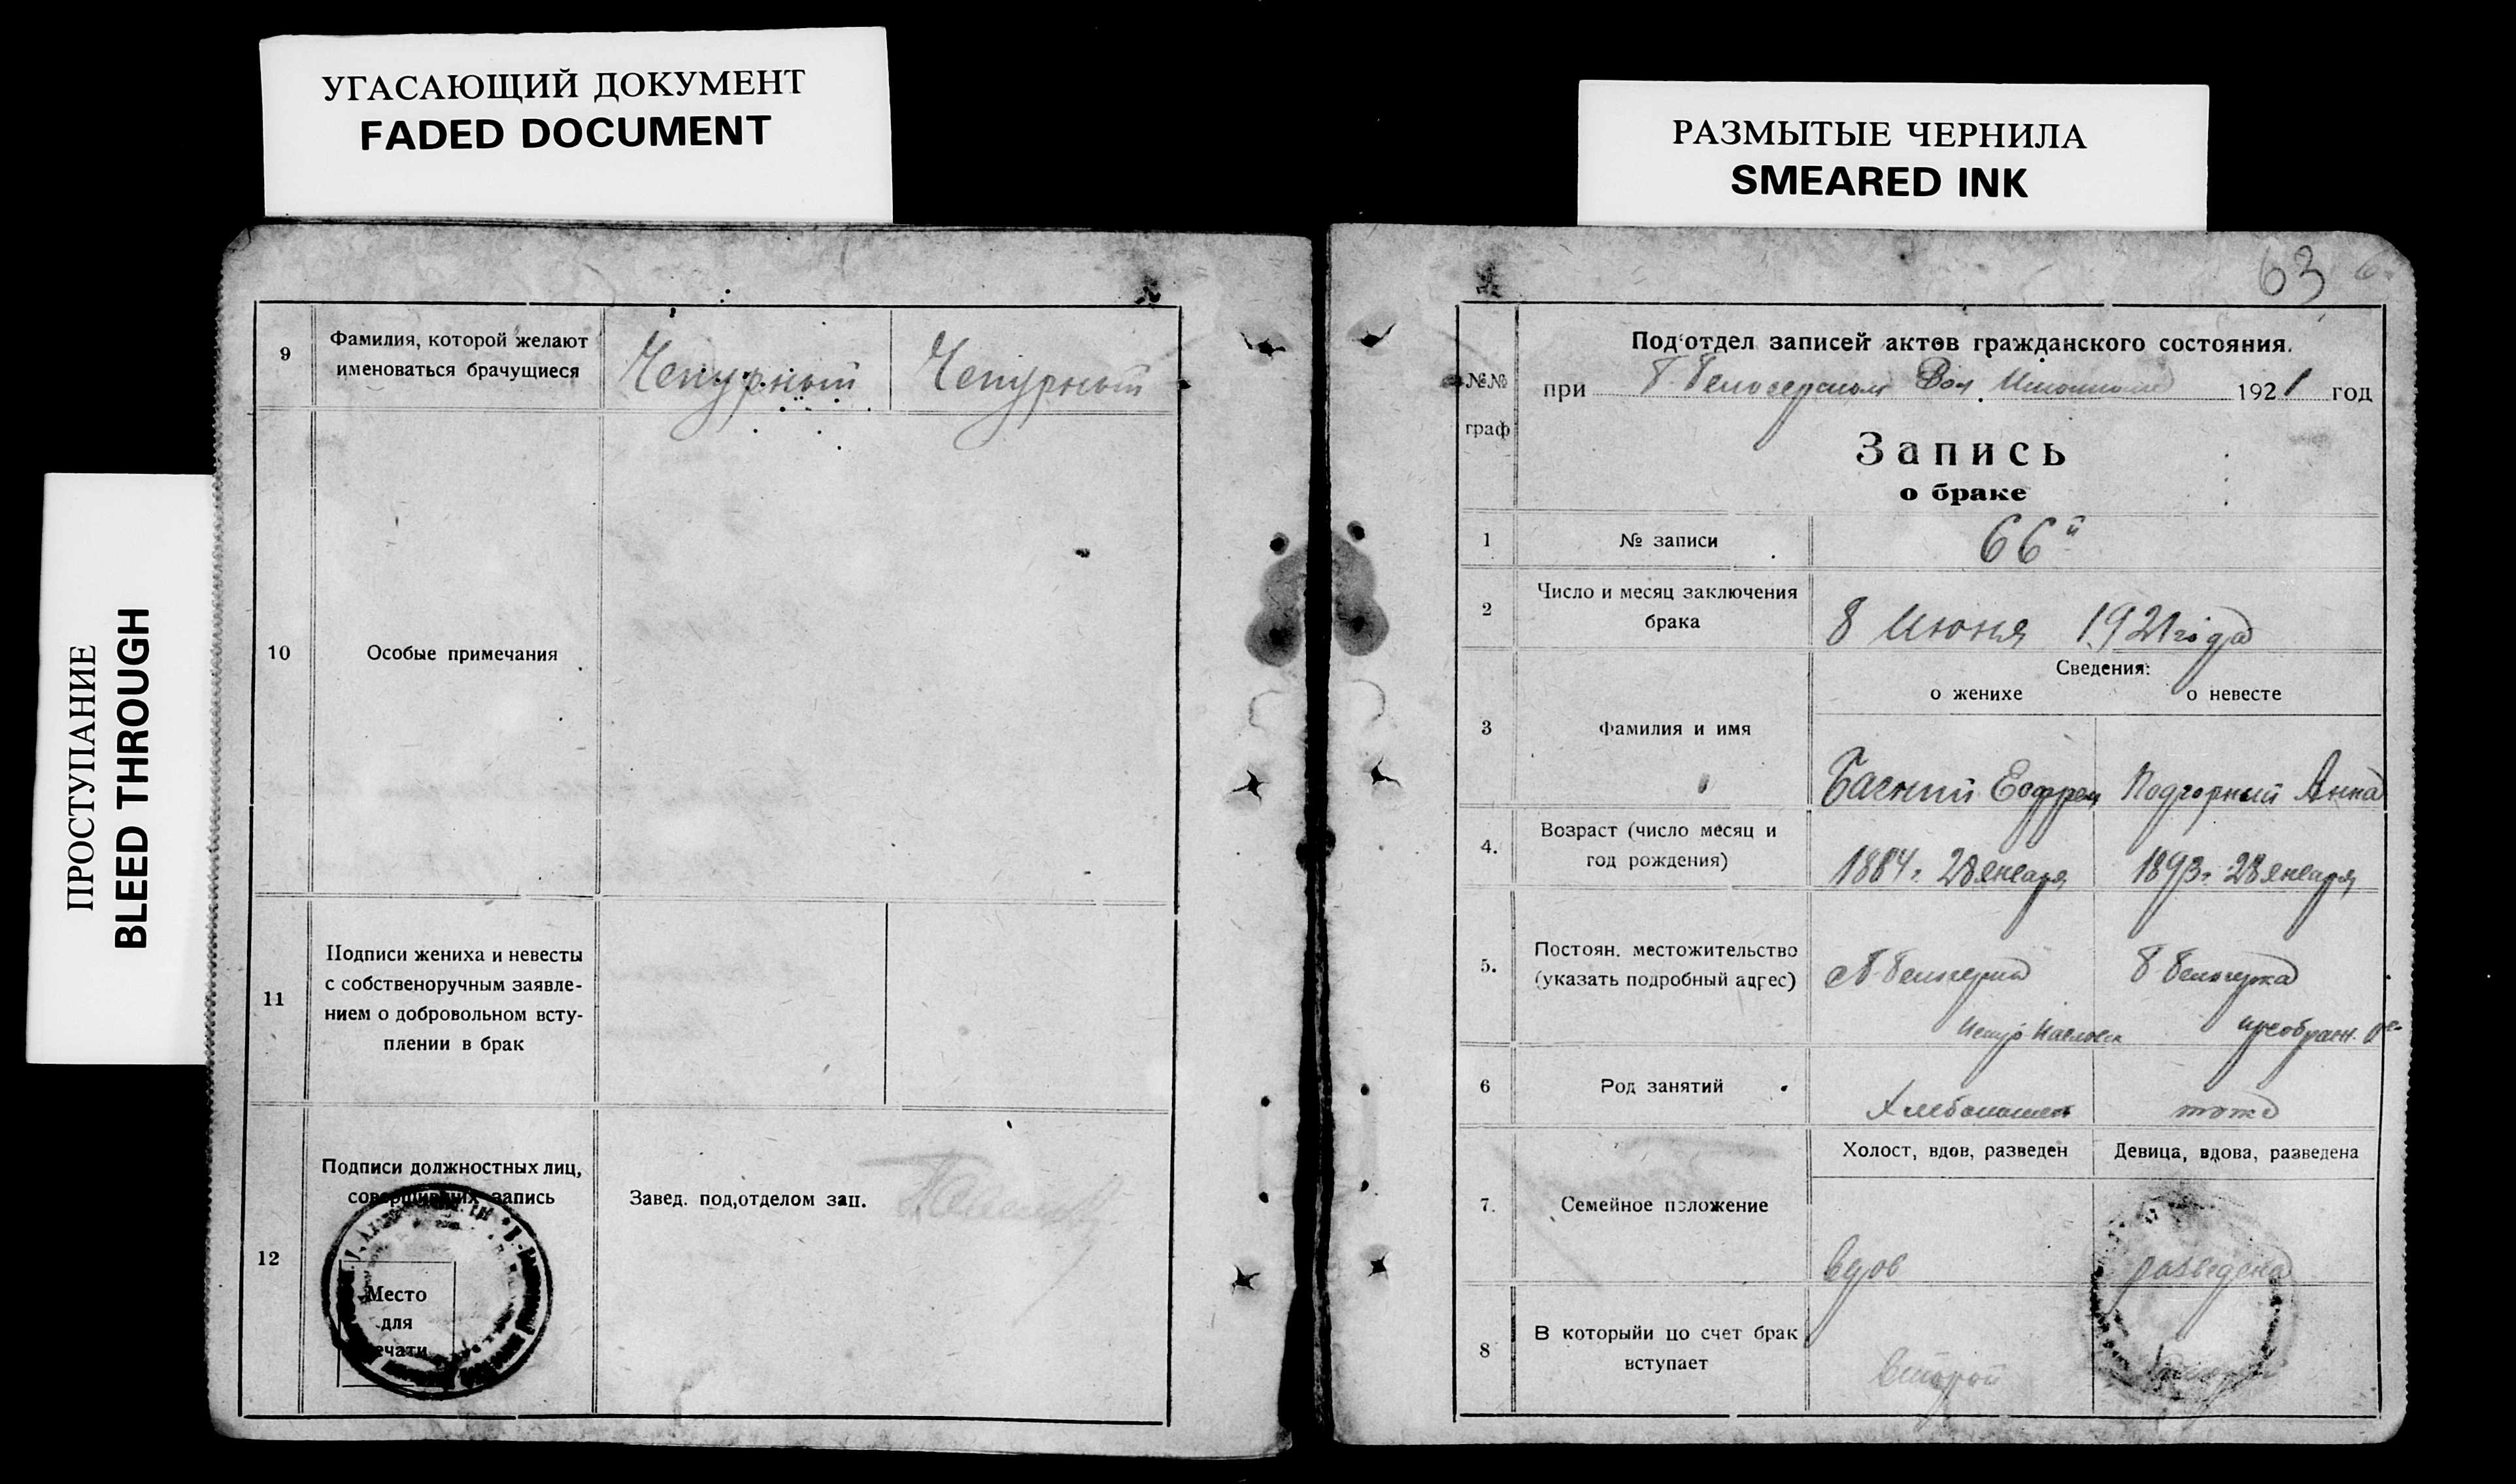 УГАСАЮЩИЙ ДОКУМЕНТ
FADED DOCUMENT
ПРОСТУПАНИЕ
BLEED THROUGH
9
Фамилия, которой желают
именоваться брачущиеся
Чепурный
Чепурный
10
Особые примечания
11
Подписи жениха и невесты
с собственоручным заявле-
нием о добровольном всту-
плении в брак
12
Подписи должностных лиц,
совершивших запись
Место
для
печати
Завед. под,отделом зап.
РАЗМЫТЫЕ ЧЕРНИЛА
SMEARED INK
63
№№
граф
Под'отдел записей актов гражданского состояния.
при 1921 год
Запись
о браке
1
№ записи
66й
2
Число и месяц заключения
брака
8 Июня 1921 года
Сведения:
о женихе
о невесте
3
Фамилия и имя
Подгорный Анна
4.
Возраст (число месяц и
год рождения)
1884 г. 28 января
1893 г. 28 января
5.
Постоян. местожительство
(указать подробный адрес)
6
Род занятий
Хлебопашец
тоже
7.
Семейное положение
Холост, вдов, разведен
Девица, вдова, разведена
вдов
разведена
8
В которыйи по счет брак
вступает
второй